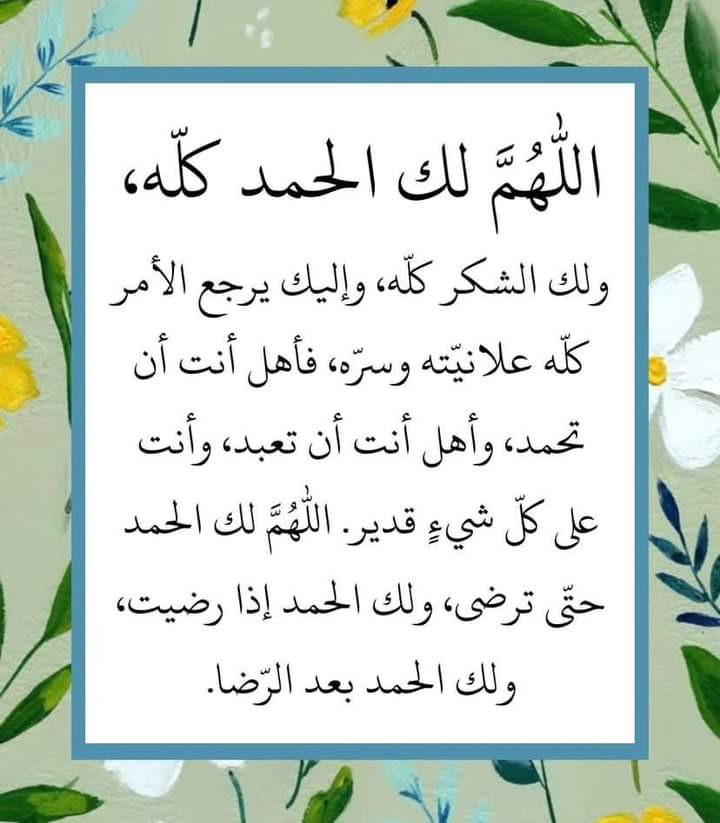 اللّٰهُمَّ لك الحمد كلّه،
ولك الشكر كلّه، وإليك يرجع الأمر
كلّه علانيّته وسرّه، فأهل أنت أن
تحمد، وأهل أنت أن تعبد، وأنت
على كلّ شيءٍ قدير. اللّٰهُمَّ لك الحمد
حتّى ترضى، ولك الحمد إذا رضيت،
ولك الحمد بعد الرّضا.